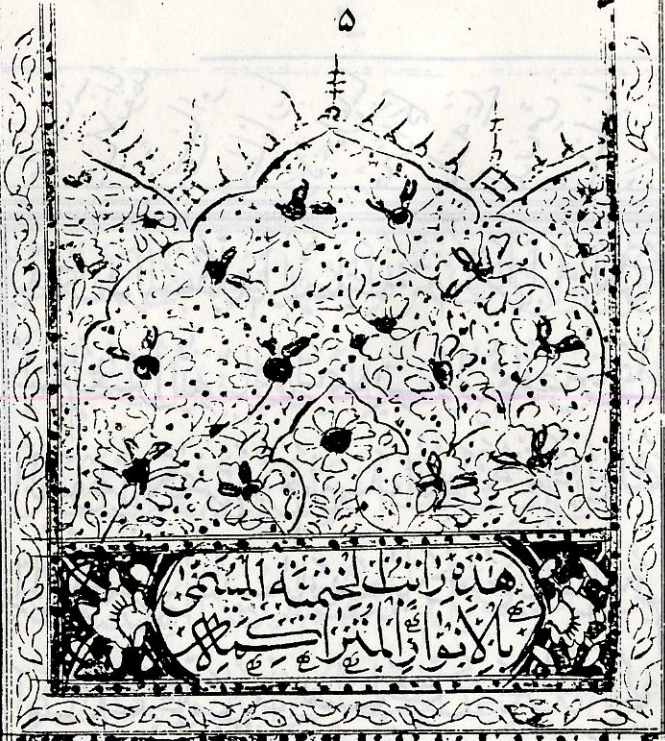 ۵
هذه راتب الختمية المسمى
بالانوار المتراكمة